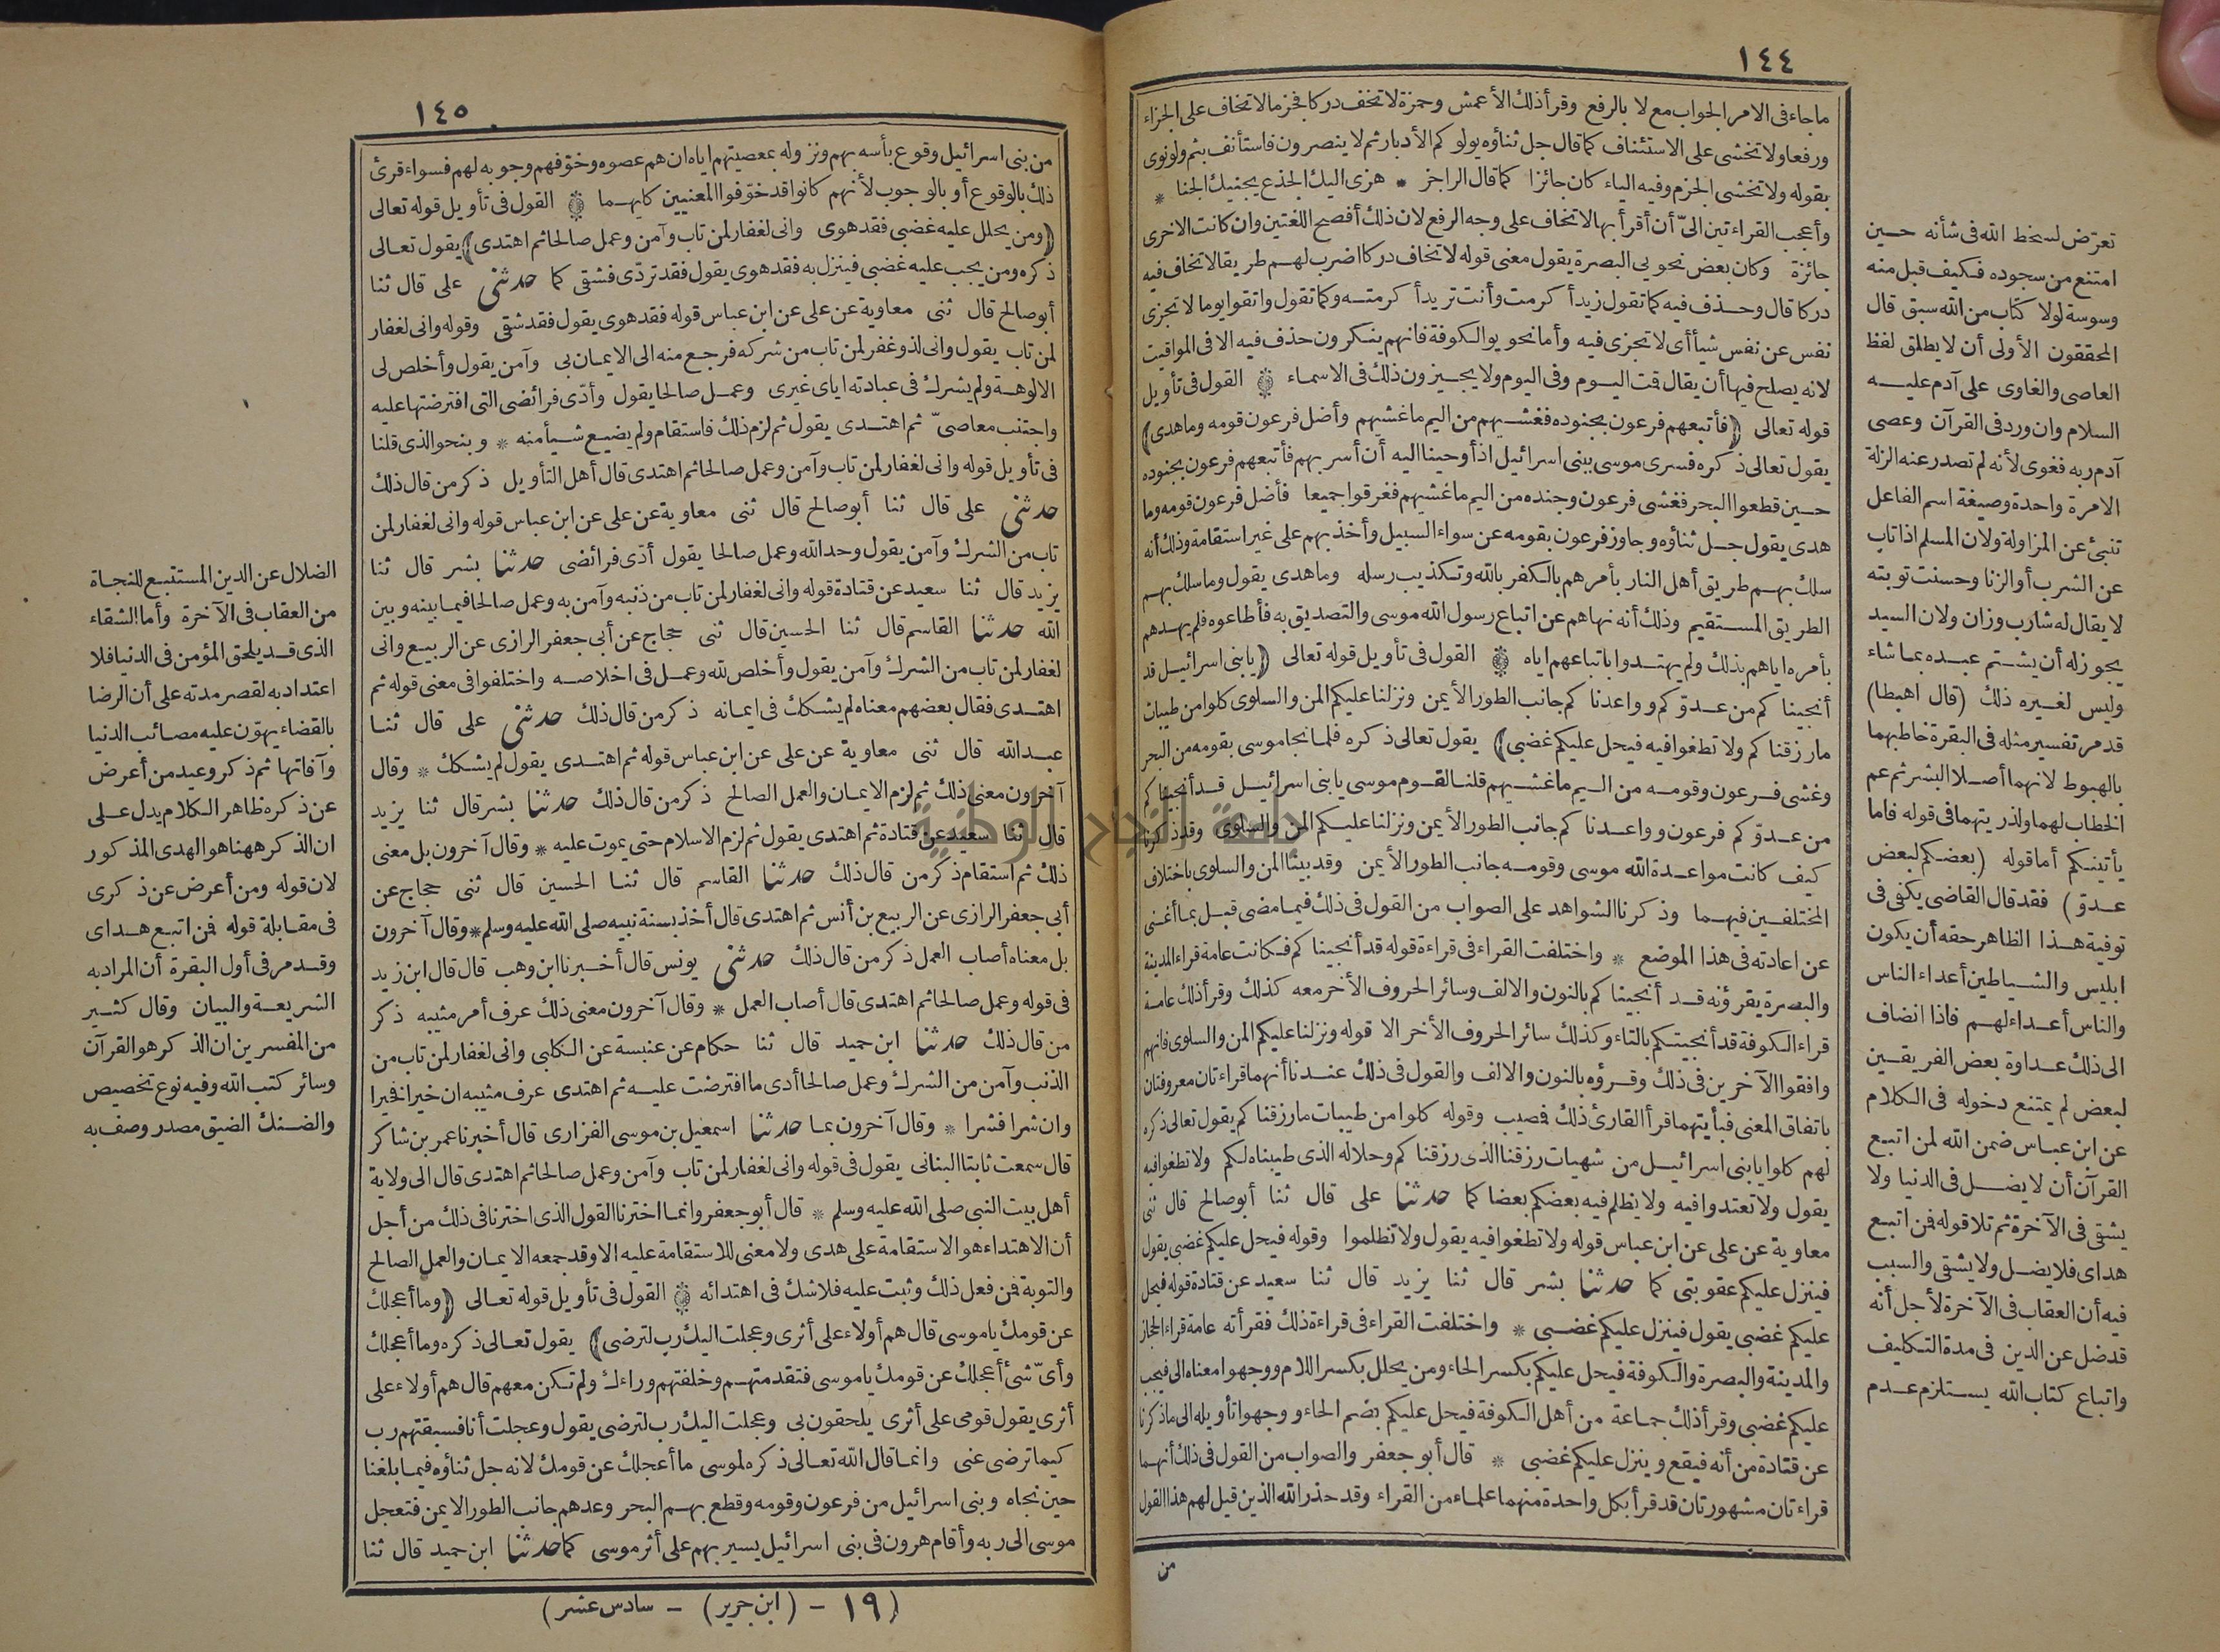 ١٤٤
ماجاء فى الامر الجواب مع لا بالرفع وقرأ ذلك الأعمش وحمزة لا تخف دركا فجزما لا تخاف على الجزاء
ورفعا ولا تخشى على الاستئناف كما قال جل ثناؤه يولوكم الأدبار ثم لا ينصرون فاستأنف بثم ولو نوى
بقوله ولا تخشى الجزم وفيه الياء كان جائزا كما قال الراجز * هزى اليك الجذع يجنيك الجنا *
وأعجب القراءتين الىّ أن أقرأ بها لا تخاف على وجه الرفع لان ذلك أفصح اللغتين وان كانت الاخرى
جائزة وكان بعض نحويى البصرة يقول معنى قوله لا تخاف دركا اضرب لهم طريقا لا تخاف فيه
دركا قال وحذف فيه كما تقول زيد أكرمت وأنت تريد أكرمته وكما تقول واتقوا يوما لا تجزى
نفس عن نفس شيأ أى لا تجزى فيه وأما نحويو الكوفة فانهم ينكرون حذف فيه الا فى المواقيت
لانه يصلح فيها أن يقال قمت اليوم وفى اليوم ولا يجيزون ذلك فى الاسماء ۞ القول فى تأويل
قوله تعالى ﴿فأتبعهم فرعون بجنوده فغشيهم من اليم ما غشيهم وأضل فرعون قومه وما هدى﴾
يقول تعالى ذكره فسرى موسى ببنى اسرائيل اذ أوحينا اليه أن أسر بهم فأتبعهم فرعون بجنوده
حين قطعوا البحر فغشى فرعون وجنده من اليم ما غشيهم فغرقوا جميعا فأضل فرعون قومه وما
هدى يقول جل ثناؤه وجاوز فرعون بقومه عن سواء السبيل وأخذ بهم على غير استقامة وذلك أنه
سلك بهم طريق أهل النار بأمرهم بالكفر بالله وتكذيب رسله وما هدى يقول وما سلك بهم
الطريق المستقيم وذلك أنه نهاهم عن اتباع رسول الله موسى والتصديق به فأطاعوه فلم يهدهم
بأمره اياهم بذلك ولم يهتدوا باتباعهم اياه ۞ القول فى تأويل قوله تعالى ﴿يابنى اسرائيل قد
أنجيناكم من عدوّكم وواعدناكم جانب الطور الأيمن ونزلنا عليكم المن والسلوى كلوا من طيبات
مارزقناكم ولا تطغوا فيه فيحل عليكم غضبى﴾ يقول تعالى ذكره فلما نجا موسى بقومه من البحر
وغشى فرعون وقومه من اليم ما غشيهم قلنا لقوم موسى يابنى اسرائيل قد أنجيناكم
من عدوّكم فرعون وواعدناكم جانب الطور الأيمن ونزلنا عليكم المن والسلوى وقد ذكرنا
كيف كانت مواعدة الله موسى وقومه جانب الطور الأيمن وقد بينا المن والسلوى باختلاف
المختلفين فيهما وذكرنا الشواهد على الصواب من القول فى ذلك فيما مضى قبل بما أغنى
عن اعادته فى هذا الموضع * واختلفت القراء فى قراءة قوله قد أنجيناكم فكانت عامة قراء المدينة
والبصرة يقرؤنه قد أنجيناكم بالنون والالف وسائر الحروف الأخر معه كذلك وقرأ ذلك عامة
قراء الكوفة قد أنجيتكم بالتاء وكذلك سائر الحروف الأخر الا قوله ونزلنا عليكم المن والسلوى فانهم
وافقوا الآخرين فى ذلك وقرؤه بالنون والالف والقول فى ذلك عندنا أنهما قراءتان معروفتان
باتفاق المعنى فبأيتهما قرأ القارئ ذلك فمصيب وقوله كلوا من طيبات ما رزقناكم يقول تعالى ذكره
لهم كلوا يابنى اسرائيل من شهيات رزقنا الذى رزقناكم وحلاله الذى طيبناه لكم ولا تطغوا فيه
يقول ولا تعتدوا فيه ولا يظلم فيه بعضكم بعضا كما حدثنا على قال ثنا أبو صالح قال ثنى
معاوية عن على عن ابن عباس قوله ولا تطغوا فيه يقول ولا تظلموا وقوله فيحل عليكم غضبى يقول
فينزل عليكم عقوبتى كما حدثنا بشر قال ثنا يزيد قال ثنا سعيد عن قتادة قوله فيحل
عليكم غضبى يقول فينزل عليكم غضبى * واختلفت القراء فى قراءة ذلك فقرأته عامة قراء الحجاز
والمدينة والبصرة والكوفة فيحل عليكم بكسر الحاء ومن يحلل بكسر اللام ووجهوا معناه الى فيجب
عليكم غضبى وقرأ ذلك جماعة من أهل الكوفة فيحل عليكم بضم الحاء ووجهوا تأويله الى ما ذكرنا
عن قتادة من أنه فيقع وينزل عليكم غضبى * قال أبو جعفر والصواب من القول فى ذلك أنهما
قراءتان مشهورتان قد قرأ بكل واحدة منهما علماء من القراء وقد حذر الله الذين قيل لهم هذا القول
من
تعرّض لسخط الله فى شأنه حين
امتنع من سجوده فكيف قبل منه
وسوسة لولا كتاب من الله سبق قال
المحققون الأولى أن لا يطلق لفظ
العاصى والغاوى على آدم عليه
السلام وان ورد فى القرآن وعصى
آدم ربه فغوى لأنه لم تصدر عنه الزلة
الامرة واحدة وصيغة اسم الفاعل
تنبئ عن المزاولة ولان المسلم اذا تاب
عن الشرب أو الزنا وحسنت توبته
لا يقال له شارب وزان ولان السيد
يجوز له أن يشتم عبده بما شاء
وليس لغيره ذلك (قال اهبطا)
قد مر تفسير مثله فى البقرة خاطبهما
بالهبوط لانهما أصلا البشر ثم عم
الخطاب لهما ولذريتهما فى قوله فاما
يأتينكم أما قوله (بعضكم لبعض
عدوّ) فقد قال القاضى يكفى فى
توفية هذا الظاهر حقه أن يكون
ابليس والشياطين أعداء الناس
والناس أعداء لهم فاذا انضاف
الى ذلك عداوة بعض الفريقين
لبعض لم يمتنع دخوله فى الكلام
عن ابن عباس ضمن الله لمن اتبع
القرآن أن لا يضل فى الدنيا ولا
يشقى فى الآخرة ثم تلا قوله فمن اتبع
هداى فلا يضل ولا يشقى والسبب
فيه أن العقاب فى الآخرة لأجل أنه
قد ضل عن الدين فى مدة التكليف
واتباع كتاب الله يستلزم عدم
١٤٥
من بنى اسرائيل وقوع بأسه بهم ونزوله بمعصيتهم اياه ان هم عصوه وخوّفهم وجوبه لهم فسواء قرئ
ذلك بالوقوع أو بالوجوب لأنهم كانوا قد خوّفوا المعنيين كليهما ۞ القول فى تأويل قوله تعالى
﴿ومن يحلل عليه غضبى فقد هوى وانى لغفار لمن تاب وآمن وعمل صالحا ثم اهتدى﴾ يقول تعالى
ذكره ومن يجب عليه غضبى فينزل به فقد هوى يقول فقد تردّى فشقى كما حدثنى على قال ثنا
أبو صالح قال ثنى معاوية عن على عن ابن عباس قوله فقد هوى يقول فقد شقى وقوله وانى لغفار
لمن تاب يقول وانى لذو غفر لمن تاب من شركه فرجع منه الى الايمان بى وآمن يقول وأخلص لى
الالوهة ولم يشرك فى عبادته اياى غيرى وعمل صالحا يقول وأدّى فرائضى التى افترضتها عليه
واجتنب معاصىّ ثم اهتدى يقول ثم لزم ذلك فاستقام ولم يضيع شيأ منه * وبنحو الذى قلنا
فى تأويل قوله وانى لغفار لمن تاب وآمن وعمل صالحا ثم اهتدى قال أهل التأويل ذكر من قال ذلك
حدثنى على قال ثنا أبو صالح قال ثنى معاوية عن على عن ابن عباس قوله وانى لغفار لمن
تاب من الشرك وآمن يقول وحد الله وعمل صالحا يقول أدّى فرائضى حدثنا بشر قال ثنا
يزيد قال ثنا سعيد عن قتادة قوله وانى لغفار لمن تاب من ذنبه وآمن به وعمل صالحا فيما بينه وبين
الله حدثنا القاسم قال ثنا الحسين قال ثنى حجاج عن أبى جعفر الرازى عن الربيع وانى
لغفار لمن تاب من الشرك وآمن يقول وأخلص لله وعمل فى اخلاصه واختلفوا فى معنى قوله ثم
اهتدى فقال بعضهم معناه لم يشكك فى ايمانه ذكر من قال ذلك حدثنى على قال ثنا
عبد الله قال ثنى معاوية عن على عن ابن عباس قوله ثم اهتدى يقول لم يشكك * وقال
آخرون معنى ذلك ثم لزم الايمان والعمل الصالح ذكر من قال ذلك حدثنا بشر قال ثنا يزيد
قال ثنا سعيد عن قتادة ثم اهتدى يقول ثم لزم الاسلام حتى يموت عليه * وقال آخرون بل معنى
ذلك ثم استقام ذكر من قال ذلك حدثنا القاسم قال ثنا الحسين قال ثنى حجاج عن
أبى جعفر الرازى عن الربيع بن أنس ثم اهتدى قال أخذ بسنة نبيه صلى الله عليه وسلم * وقال آخرون
بل معناه أصاب العمل ذكر من قال ذلك حدثنى يونس قال أخبرنا ابن وهب قال قال ابن زيد
فى قوله وعمل صالحا ثم اهتدى قال أصاب العمل * وقال آخرون معنى ذلك عرف أمر مثيبه ذكر
من قال ذلك حدثنا ابن حميد قال ثنا حكام عن عنبسة عن الكلبى وانى لغفار لمن تاب من
الذنب وآمن من الشرك وعمل صالحا أدى ما افترضت عليه ثم اهتدى عرف مثيبه ان خيرا فخيرا
وان شرا فشرا * وقال آخرون بما حدثنا اسمعيل بن موسى الفزارى قال أخبرنا عمر بن شاكر
قال سمعت ثابتا البنانى يقول فى قوله وانى لغفار لمن تاب وآمن وعمل صالحا ثم اهتدى قال الى ولاية
أهل بيت النبى صلى الله عليه وسلم * قال أبو جعفر وانما اخترنا القول الذى اخترنا فى ذلك من أجل
أن الاهتداء هو الاستقامة على هدى ولا معنى للاستقامة عليه الا وقد جمعه الايمان والعمل الصالح
والتوبة فمن فعل ذلك وثبت عليه فلا شك فى اهتدائه ۞ القول فى تأويل قوله تعالى ﴿وما أعجلك
عن قومك ياموسى قال هم أولاء على أثرى وعجلت اليك رب لترضى﴾ يقول تعالى ذكره وما أعجلك
وأىّ شئ أعجلك عن قومك ياموسى فتقدمتهم وخلفتهم وراءك ولم تكن معهم قال هم أولاء على
أثرى يقول قومى على أثرى يلحقون بى وعجلت اليك رب لترضى يقول وعجلت أنا فسبقتهم رب
كيما ترضى عنى وانما قال الله تعالى ذكره لموسى ما أعجلك عن قومك لانه جل ثناؤه فيما بلغنا
حين نجاه وبنى اسرائيل من فرعون وقومه وقطع بهم البحر وعدهم جانب الطور الايمن فتعجل
موسى الى ربه وأقام هرون فى بنى اسرائيل يسير بهم على أثر موسى كما حدثنا ابن حميد قال ثنا
(١٩ - (ابن جرير) - سادس عشر)
الضلال عن الدين المستتبع للنجاة
من العقاب فى الآخرة وأما الشقاء
الذى قد يلحق المؤمن فى الدنيا فلا
اعتداد به لقصر مدته على أن الرضا
بالقضاء يهوّن عليه مصائب الدنيا
وآفاتها ثم ذكر وعيد من أعرض
عن ذكره ظاهر الكلام يدل على
ان الذكر ههنا هو الهدى المذكور
لان قوله ومن أعرض عن ذكرى
فى مقابلة قوله فمن اتبع هداى
وقد مر فى أول البقرة أن المراد به
الشريعة والبيان وقال كثير
من المفسرين ان الذكر هو القرآن
وسائر كتب الله وفيه نوع تخصيص
والضنك الضيق مصدر وصف به
جامعة النجاح الوطنية